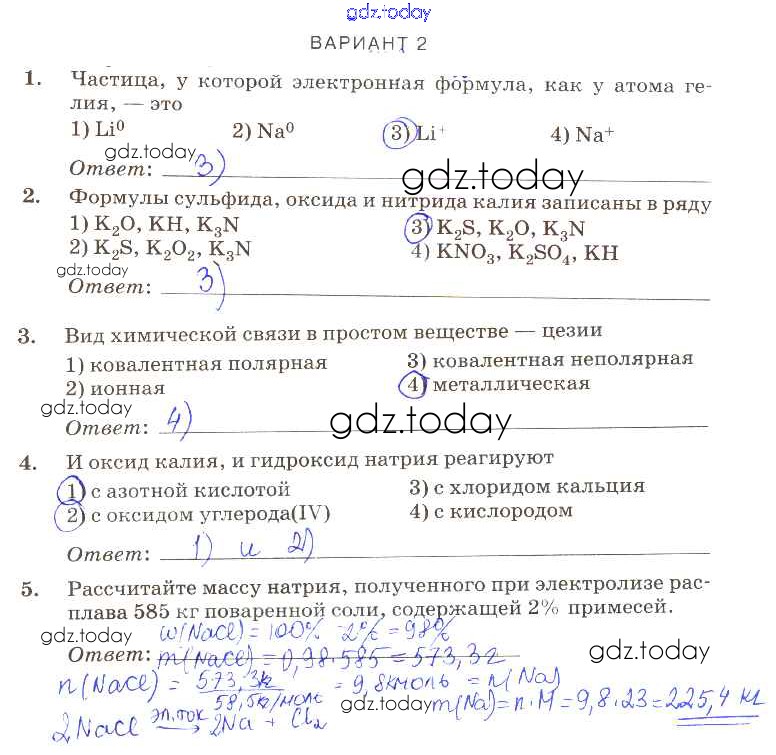 gdz.today
ВАРИАНТ 2
1. Частица, у которой электронная формула, как у атома ге-
лия, — это
1) Li⁰ 2) Na⁰ 3) Li⁺ 4) Na⁺
gdz.today
Ответ: 3) gdz.today
2. Формулы сульфида, оксида и нитрида калия записаны в ряду
1) K₂O, KH, K₃N 3) K₂S, K₂O, K₃N
2) K₂S, K₂O₂, K₃N 4) KNO₃, K₂SO₄, KH
gdz.today
Ответ: 3)
3. Вид химической связи в простом веществе — цезии
1) ковалентная полярная 3) ковалентная неполярная
2) ионная 4) металлическая
gdz.today gdz.today
Ответ: 4)
4. И оксид калия, и гидроксид натрия реагируют
1) с азотной кислотой 3) с хлоридом кальция
2) с оксидом углерода(IV) 4) с кислородом
Ответ: 1) и 2)
5. Рассчитайте массу натрия, полученного при электролизе рас-
плава 585 кг поваренной соли, содержащей 2% примесей.
gdz.today w(NaCl) = 100% - 2% = 98%
Ответ: m(NaCl) = 0,98·585 = 573,3г gdz.today
n(NaCl) = 573,3кг / 58,5кг/моль = 9,8кмоль = n(Na)
gdz.today m(Na) = n·M = 9,8·23 = 225,4 кг
2NaCl эл.ток → 2Na + Cl₂